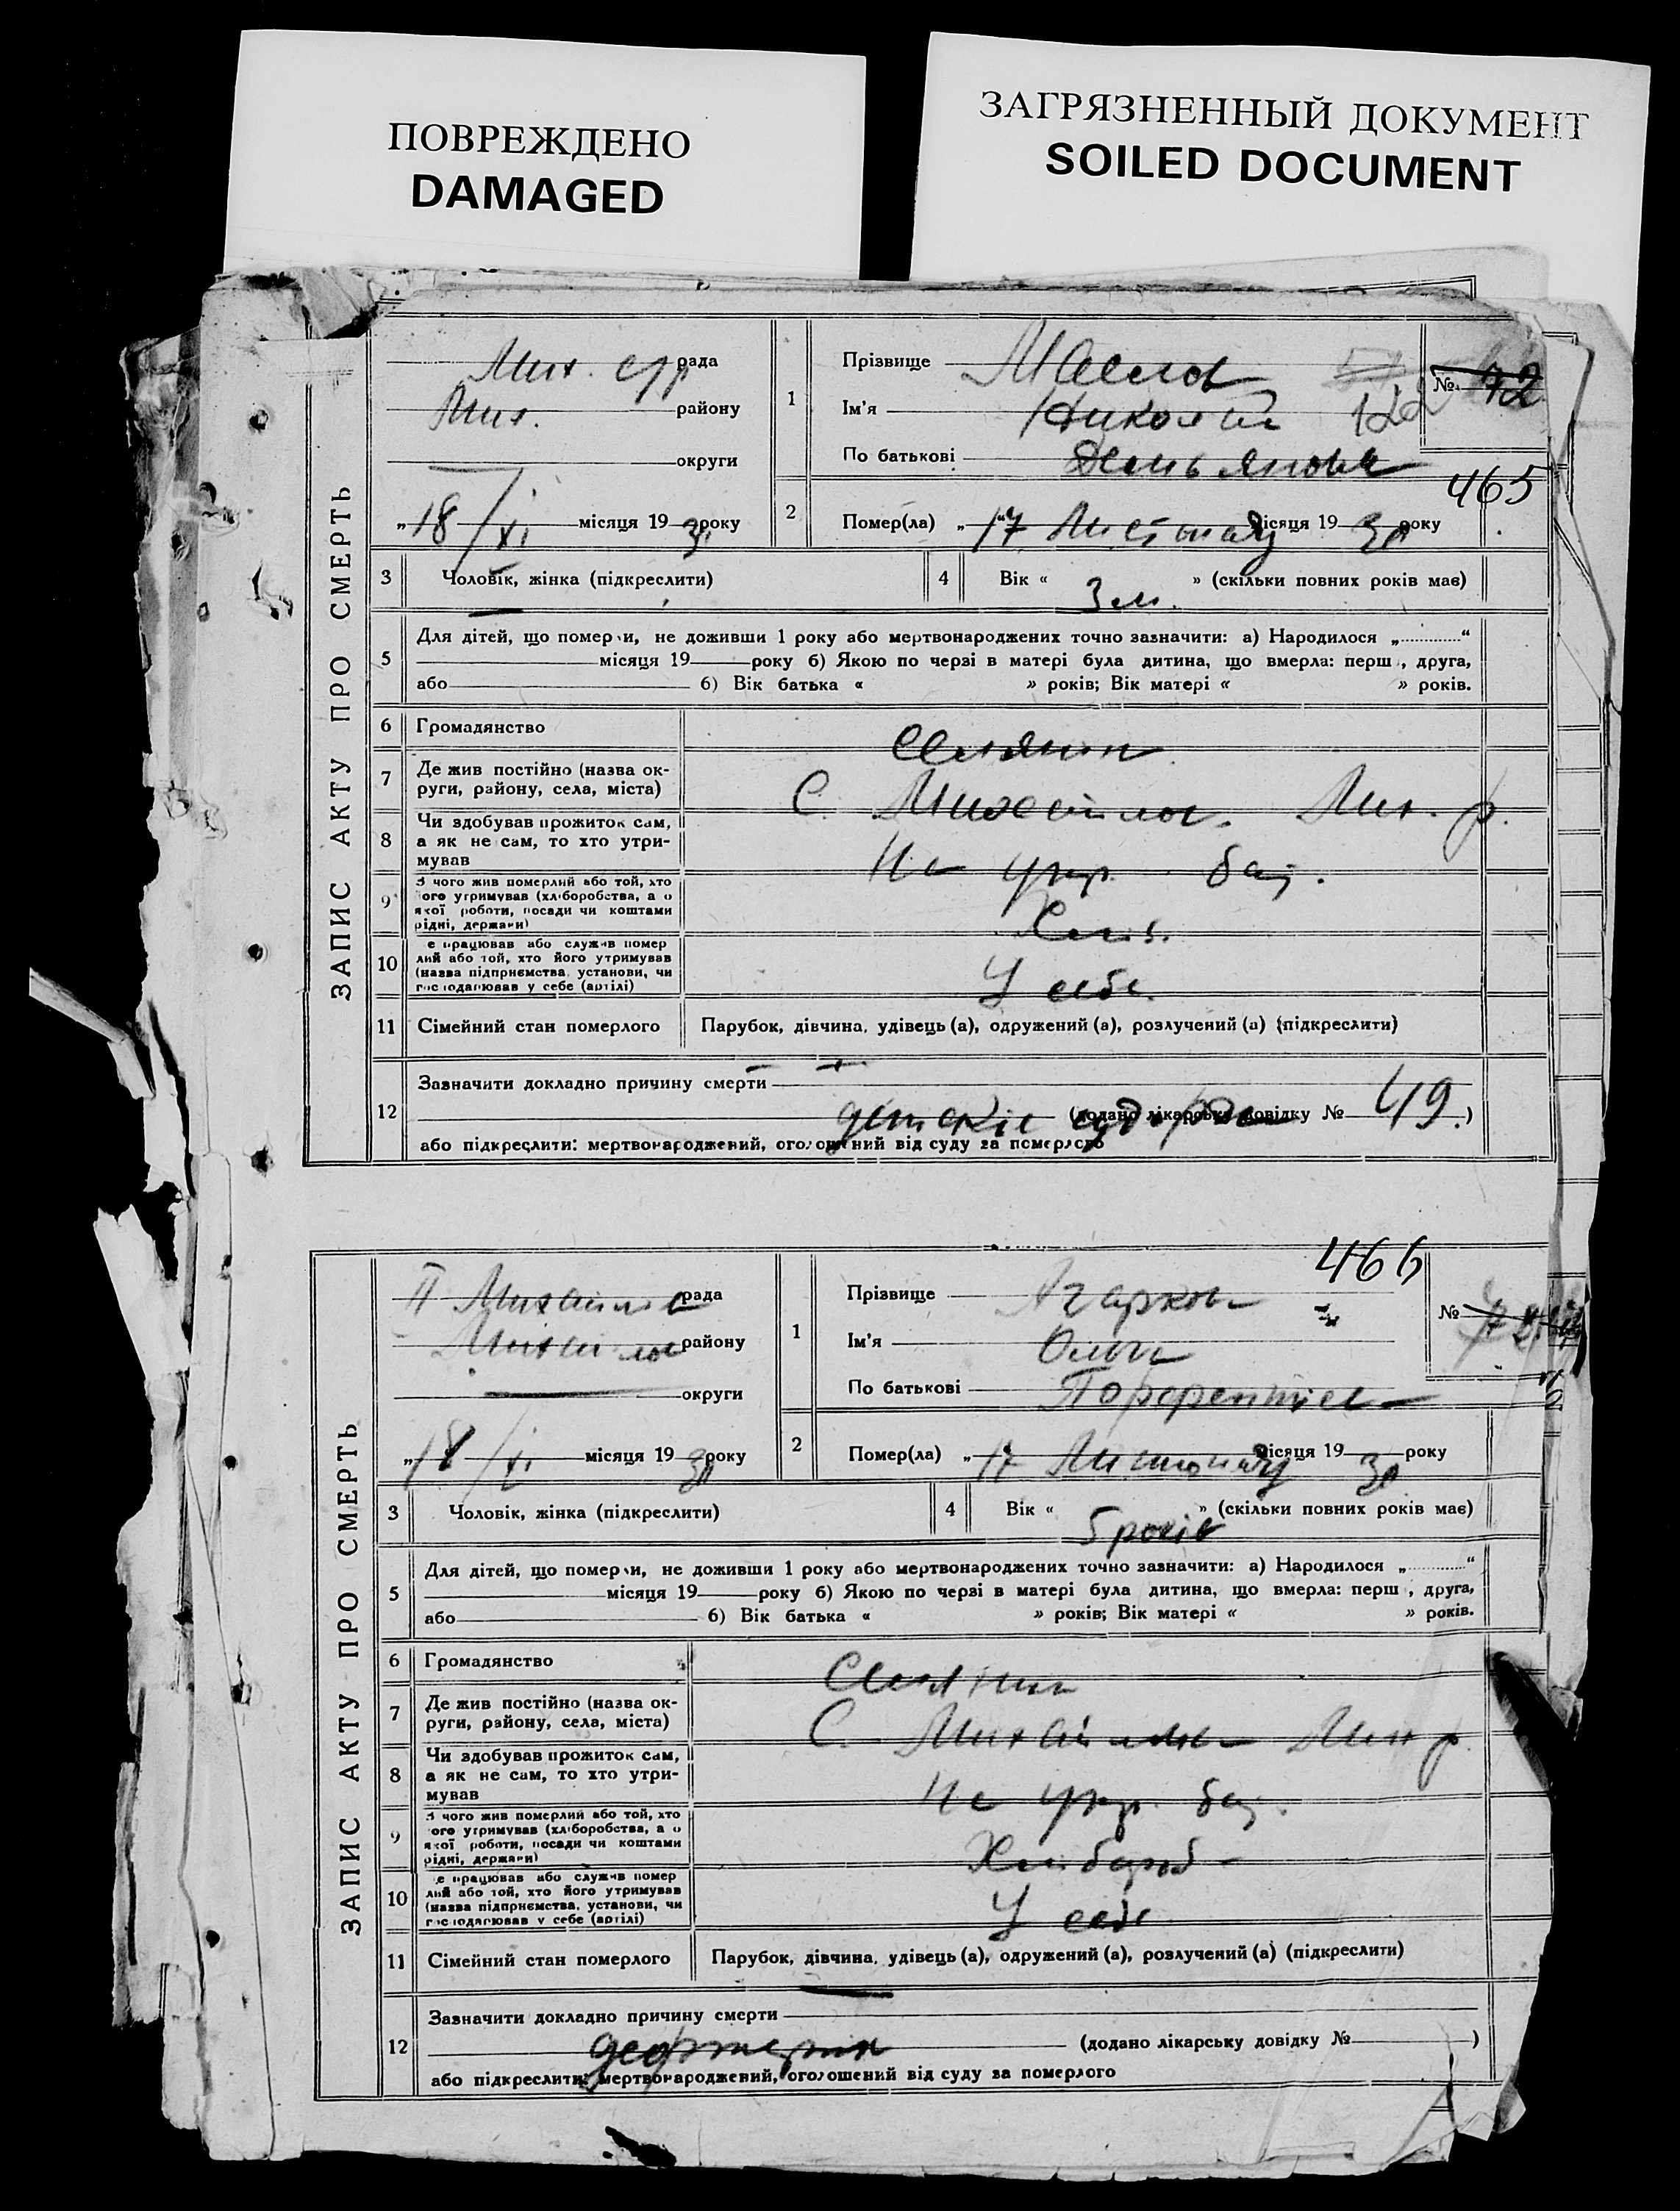 ПОВРЕЖДЕНО
DAMAGED
ЗАГРЯЗНЕННЫЙ ДОКУМЕНТ
SOILED DOCUMENT
ЗАПИС АКТУ ПРО СМЕРТЬ
Мих. с/р рада
Мих. району
округи
„18/XI місяця 19 30 року
1
Прізвище Маслов
Ім'я Николай 122
По батькові Демьянов
№ 72
465
2
Помер(ла) „17" Листопаду місяця 19 30 року
3 Чоловік, жінка (підкреслити)
4 Вік « 3 м. » (скільки повних років має)
5
Для дітей, що померли, не доживши 1 року або мертвонароджених точно зазначити: а) Народилося „ “
місяця 19 року б) Якою по черзі в матері була дитина, що вмерла: перш , друга,
або б) Вік батька « » років; Вік матері « » років.
6 Громадянство Селянин
7 Де жив постійно (назва ок-
руги, району, села, міста) С. Михайлов. Мих. р.
8 Чи здобував прожиток сам,
а як не сам, то хто утри-
мував Не утр. бать.
9 З чого жив померлий або той, хто
його утримував (хліборобства, а о
якої роботи, посади чи коштами
рідні, держави) Хліб.
10 е працював або служив помер
лий або той, хто його утримував
(назва підприємства, установи, чи
господарював у себе (артілі) У себе.
11 Сімейний стан померлого Парубок, дівчина, удівець (а), одружений (а), розлучений (а) (підкреслити)
12
Зазначити докладно причину смерти
детские (додано лікарську довідку № 49.)
або підкреслити: мертвонароджений, оголошений від суду за померлого
ЗАПИС АКТУ ПРО СМЕРТЬ
466
II Михайлов рада
Михайлов району
округи
„18/XI місяця 19 30 року
1
Прізвище Агаркова
Ім'я Ольга
По батькові
№
2
Помер(ла) „17" Листопаду місяця 19 30 року
3 Чоловік, жінка (підкреслити)
4 Вік « 5 років » (скільки повних років має)
5
Для дітей, що померли, не доживши 1 року або мертвонароджених точно зазначити: а) Народилося „ “
місяця 19 року б) Якою по черзі в матері була дитина, що вмерла: перш , друга,
або б) Вік батька « » років; Вік матері « » років.
6 Громадянство Селянин
7 Де жив постійно (назва ок-
руги, району, села, міста) С. Михайлов Мих р.
8 Чи здобував прожиток сам,
а як не сам, то хто утри-
мував Не утр. бать.
9 З чого жив померлий або той, хто
ого утримував (хліборобства, а о
якої роботи, посади чи коштами
рідні, держави) Хлібороб
10 е працював або служив помер
лий або той, хто його утримував
(назва підприємства, установи, чи
господарював у себе (артілі) У себе
11 Сімейний стан померлого Парубок, дівчина, удівець (а), одружений (а), розлучений (а) (підкреслити)
12
Зазначити докладно причину смерти
дефтерия (додано лікарську довідку № )
або підкреслити: мертвонароджений, оголошений від суду за померлого